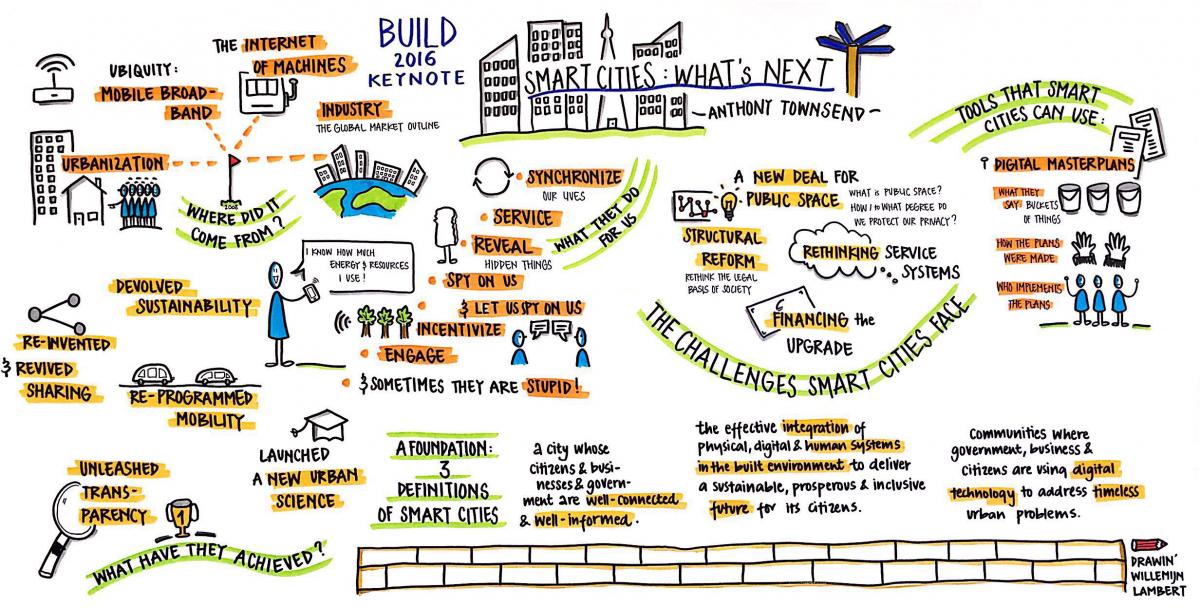 BUILD
2016
KEYNOTE
SMART CITIES: WHAT'S NEXT
-ANTHONY TOWNSEND-
THE INTERNET
OF MACHINES
UBIQUITY:
MOBILE BROAD-
BAND
INDUSTRY
THE GLOBAL MARKET OUTLINE
URBANIZATION
2008
WHERE DID IT
COME FROM?
SYNCHRONIZE
OUR LIVES
SERVICE
REVEAL
HIDDEN THINGS
SPY ON US
& LET US SPY ON US
INCENTIVIZE
ENGAGE
& SOMETIMES THEY ARE STUPID!
WHAT THEY DO
FOR US
I KNOW HOW MUCH
ENERGY & RESOURCES
I USE!
DEVOLVED
SUSTAINABILITY
RE-INVENTED
& REVIVED
SHARING
RE-PROGRAMMED
MOBILITY
LAUNCHED
A NEW URBAN
SCIENCE
UNLEASHED
TRANS-
PARENCY
1
WHAT HAVE THEY ACHIEVED?
A NEW DEAL FOR
PUBLIC SPACE
WHAT IS PUBLIC SPACE?
HOW / TO WHAT DEGREE DO
WE PROTECT OUR PRIVACY?
STRUCTURAL
REFORM
RETHINK THE LEGAL
BASIS OF SOCIETY
RETHINKING SERVICE
SYSTEMS
€
FINANCING the
UPGRADE
THE CHALLENGES SMART CITIES FACE
TOOLS THAT SMART
CITIES CAN USE:
DIGITAL MASTERPLANS
WHAT THEY
SAY BUCKETS
OF THINGS
HOW THE PLANS
WERE MADE
WHO IMPLEMENTS
THE PLANS
A FOUNDATION:
3
DEFINITIONS
OF SMART CITIES
a city whose
citizens & busi-
nesses & govern-
ment are well-connected
& well-informed.
the effective integration of
physical, digital & human systems
in the built environment to deliver
a sustainable, prosperous & inclusive
future for its citizens.
Communities where
government, business &
citizens are using digital
technology to address timeless
urban problems.
DRAWIN'
WILLEMIJN
LAMBERT